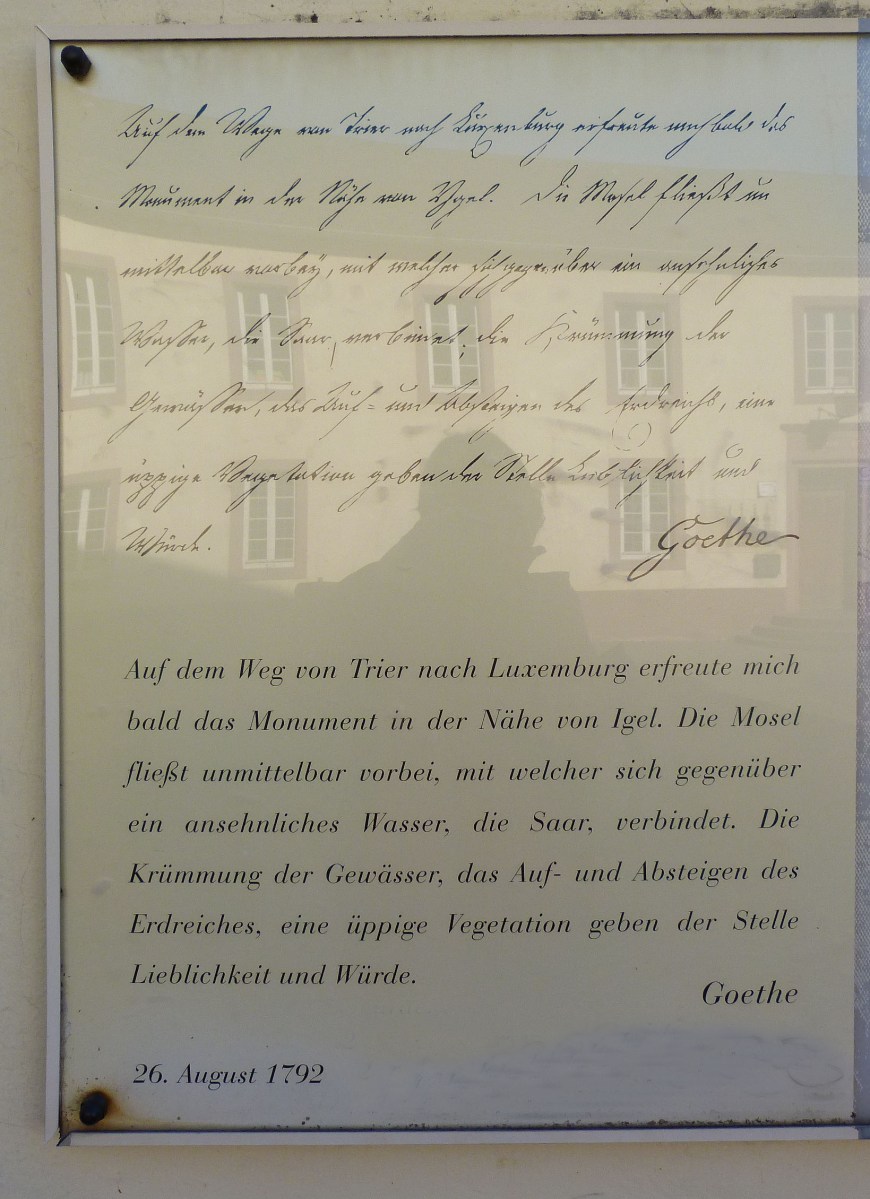 Auf dem Wege von Trier nach Luxemburg erfreute mich bald das
Monument in der Nähe von Ygel. Die Mosel fließt un
mittelbar vorbey, mit welcher sich gegenüber ein ansehnliches
Wasser, die Saar, verbindet; die Krümmung der
Gewässer, das Auf- und Absteigen des Erdreichs, eine
üppige Vegetation geben der Stelle Lieblichkeit und
Würde.
Goethe
Auf dem Weg von Trier nach Luxemburg erfreute mich
bald das Monument in der Nähe von Igel. Die Mosel
fließt unmittelbar vorbei, mit welcher sich gegenüber
ein ansehnliches Wasser, die Saar, verbindet. Die
Krümmung der Gewässer, das Auf- und Absteigen des
Erdreiches, eine üppige Vegetation geben der Stelle
Lieblichkeit und Würde.
Goethe
26. August 1792